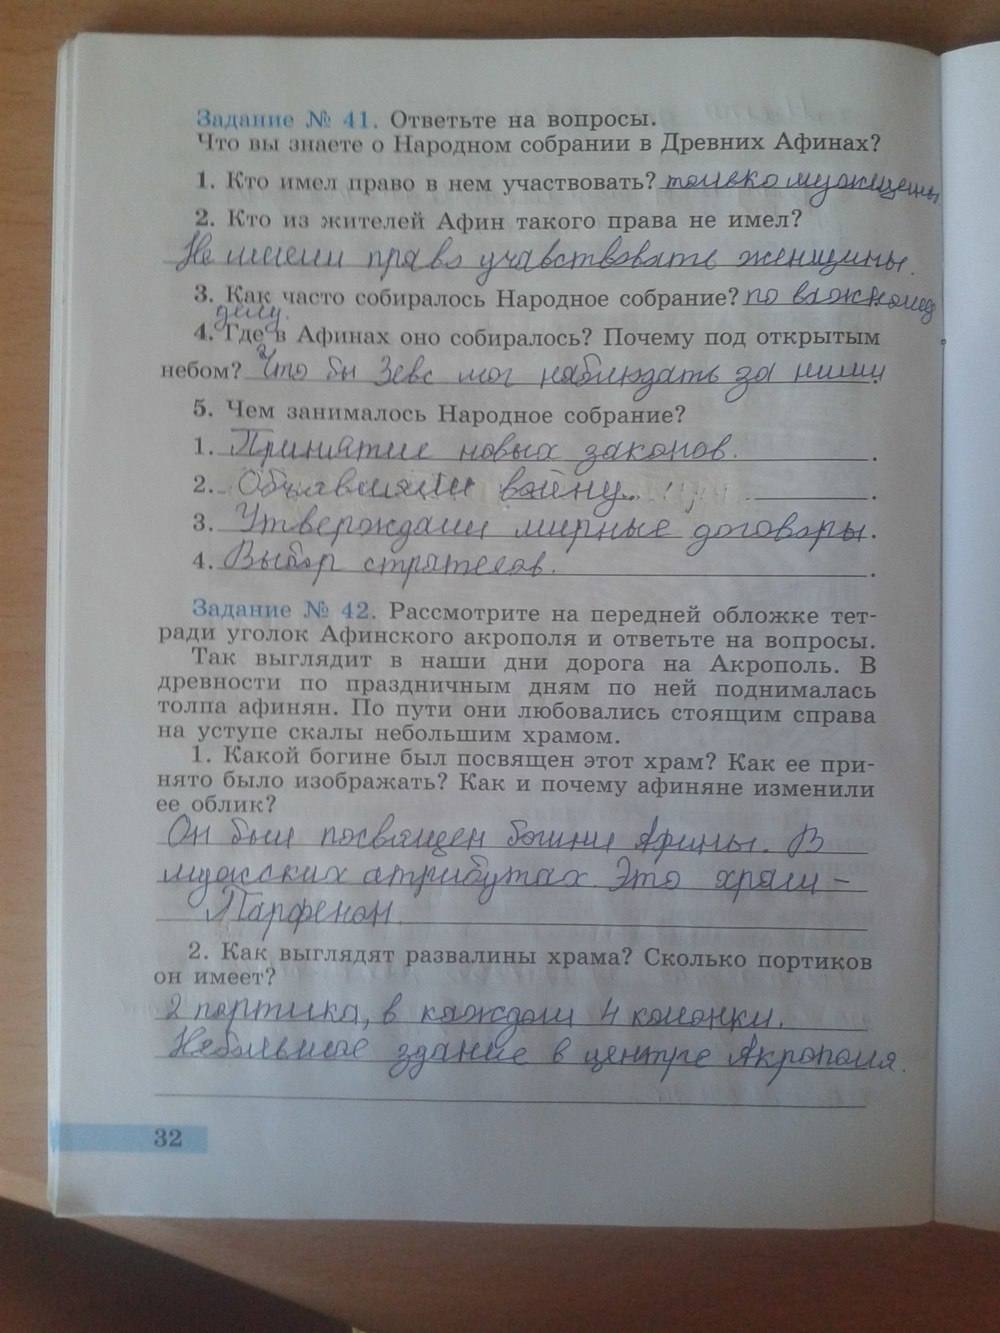 Задание № 41. Ответьте на вопросы.
Что вы знаете о Народном собрании в Древних Афинах?
1. Кто имел право в нем участвовать? только мужщены
2. Кто из жителей Афин такого права не имел?
Не имели право учавствовать женщины.
3. Как часто собиралось Народное собрание? по важному
делу.
4. Где в Афинах оно собиралось? Почему под открытым
небом? Что бы Зевс мог наблюдать за ними.
5. Чем занималось Народное собрание?
1. Принятие новых законов.
2. войну.
3. Утверждали мирные договоры.
4. Выбор стратегов.
Задание № 42. Рассмотрите на передней обложке тет-
ради уголок Афинского акрополя и ответьте на вопросы.
Так выглядит в наши дни дорога на Акрополь. В
древности по праздничным дням по ней поднималась
толпа афинян. По пути они любовались стоящим справа
на уступе скалы небольшим храмом.
1. Какой богине был посвящен этот храм? Как ее при-
нято было изображать? Как и почему афиняне изменили
ее облик?
Он был посвящен богини Афины. В
мужских атрибутах. Это храм -
Парфенон.
2. Как выглядят развалины храма? Сколько портиков
он имеет?
2 портика, в каждом 4 колонки.
Небольшое здание в центре Акрополя.
32